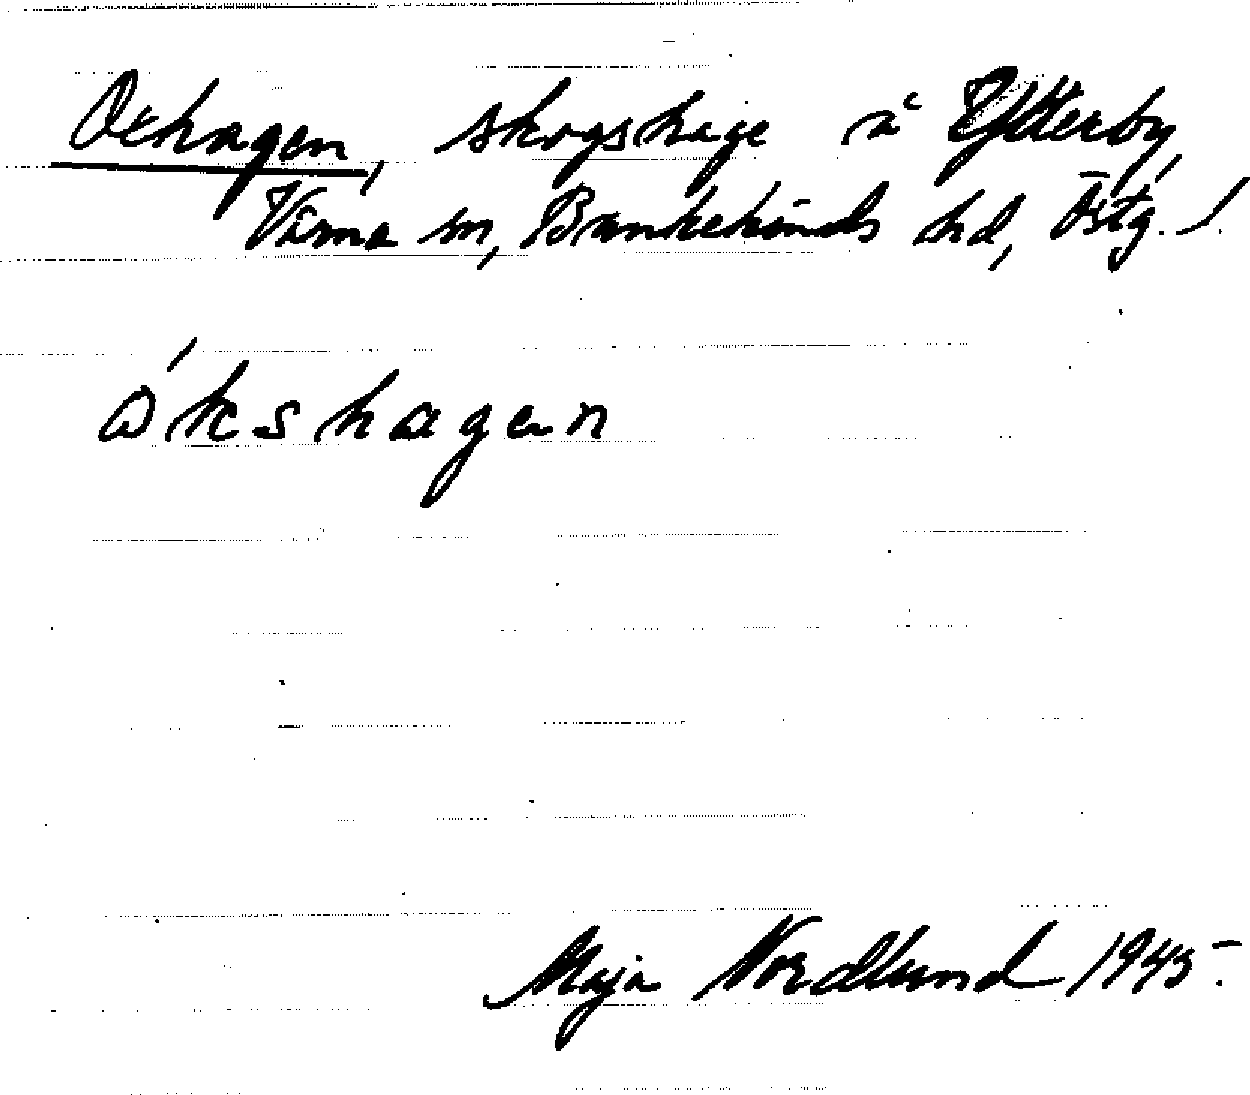 Oxhagen, skogshage å Ytterby,
Värna sn, Bankekinds hd, Östg. l.
ókshagen
Maja Nordlund 1945.